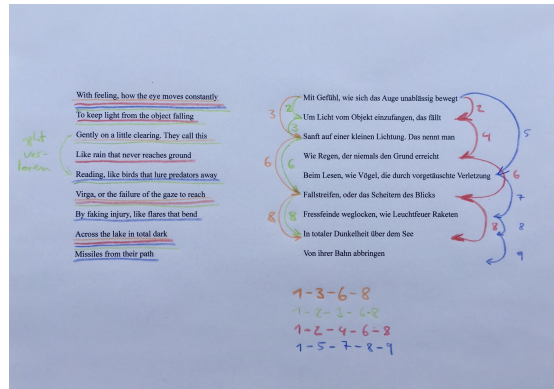 With feeling, how the eye moves constantly
To keep light from the object falling
Gently on a little clearing. They call this
Like rain that never reaches ground
Reading, like birds that lure predators away
Virga, or the failure of the gaze to reach
By faking injury, like flares that bend
Across the lake in total dark
Missiles from their path
geht
ver-
loren
Mit Gefühl, wie sich das Auge unablässig bewegt
Um Licht vom Objekt einzufangen, das fällt
Sanft auf einer kleinen Lichtung. Das nennt man
Wie Regen, der niemals den Grund erreicht
Beim Lesen, wie Vögel, die durch vorgetäuschte Verletzung
Fallstreifen, oder das Scheitern des Blicks
Fressfeinde weglocken, wie Leuchtfeuer Raketen
In totaler Dunkelheit über dem See
Von ihrer Bahn abbringen
3
6
8
2
3
6
8
2
4
6
8
5
7
8
9
1-3-6-8
1-2-3-6-8
1-2-4-6-8
1-5-7-8-9